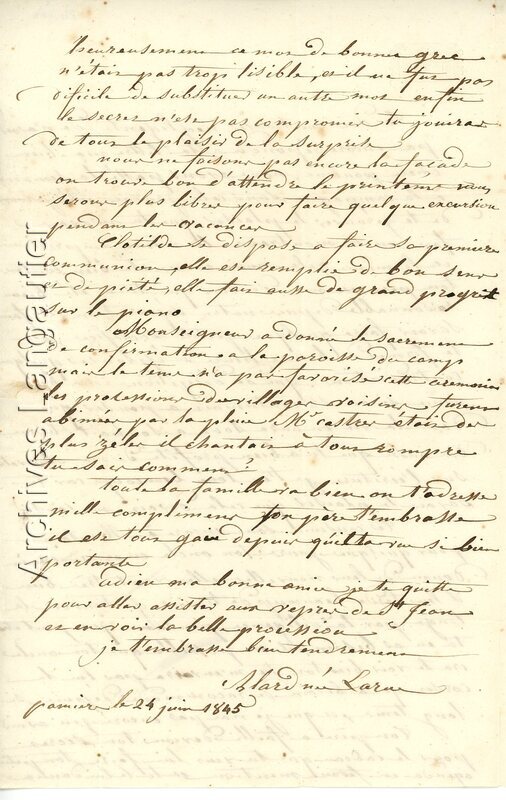 heureusement ce mot de bonne grec
n'était pas trop lisible, et il ne fut pas
dificile de substituer un autre mot enfin
le secret n'est pas compromis tu jouiras
de tout le plaisir de la surprise
nous ne faisons pas encore la façade
on trouve bon d'attendre le printems nous
serons plus libres pour faire quelque excursion
pendant les vacances
Clotilde se dispose a faire sa premiere
communion, elle est remplie de bon sens
et de pieté, elle fait aussi de grand progrès
sur le piano
Monseigneur a donné le sacrement
de confirmation a la paroisse du camp
mais le tems n'a pas favorisé cette ceremonie
les processions des villages voisins furent
abimées par la pluie Mr castres était des
plus zélé il chantait à tout rompre
tu sais comment?
toute la famille va bien on t'adresse
mille complimens ton père t'embrasse
il est tout gai depuis qu'il ta vue si bien
portante
adieu ma bonne amie je te quitte
pour aller assister aux vepres de St Jean
et en voir la belle procession
je t'embrasse bien tendrement
Alard née Larue
pamiers le 24 juin 1845
Archives Langautier